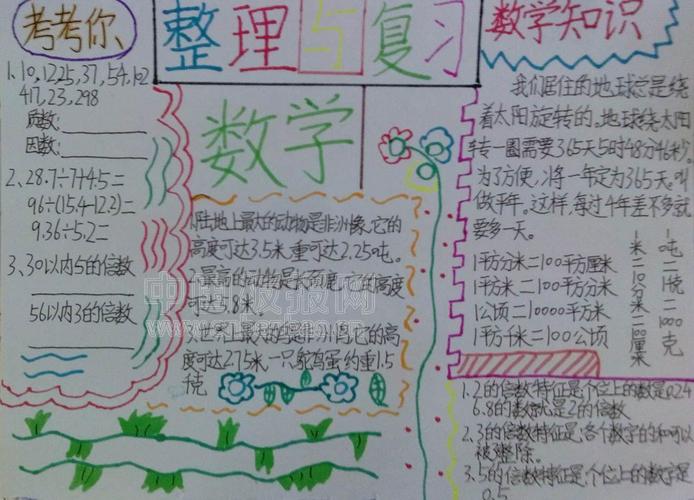 考考你
1、10,12,25,37,54,102
417,23,298
质数:
因数:
2、28.7÷7+4.5=
96÷(15.4-12.2)=
9.36÷5.2=
3、30以内5的倍数
56以内3的倍数
整理与复习
数学
1.陆地上最大的动物是非洲像,它的
高度可达3.5米,重可达2.25吨。
2.最高的动物是长颈鹿,它的高度
可达5.8米。
3.世界上最大的鸟是非洲鸟,它的高
度可达2.75米,一只鸵鸟蛋约重1.5
千克
数学知识
我们居住的地球总是绕
着太阳旋转的。地球绕太阳
转一圈需要365天5时48分46秒,
为了方便,将一年定为365天。叫
做平年。这样,每过4年差不多就
要多一天。
1平方分米=100平方厘米
1平方米=100平方分米
1公顷=10000平方米
1平方千米=100公顷
1米=10分米=100厘米
1吨=1000千克
1.2的倍数特征是:个位上的数是0.2.4
6.8的数就是2的倍数
2.3的倍数特征是:各个数字的和可以
被整除。
3.5的倍数特征是:个位上的数字是
0.5